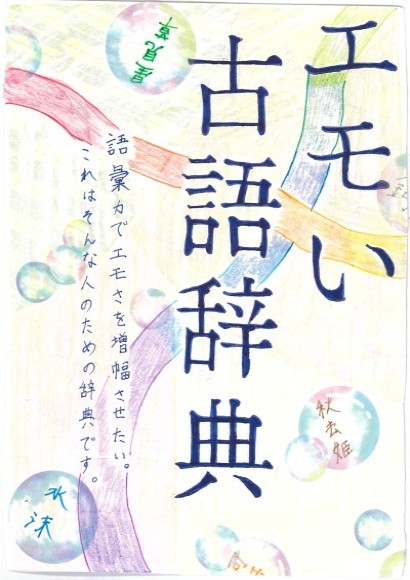 エモい
古語辞典
語彙力でエモさを増幅させたい。
これはそんな人のための辞典です。
星見草
秋去姫
水沫